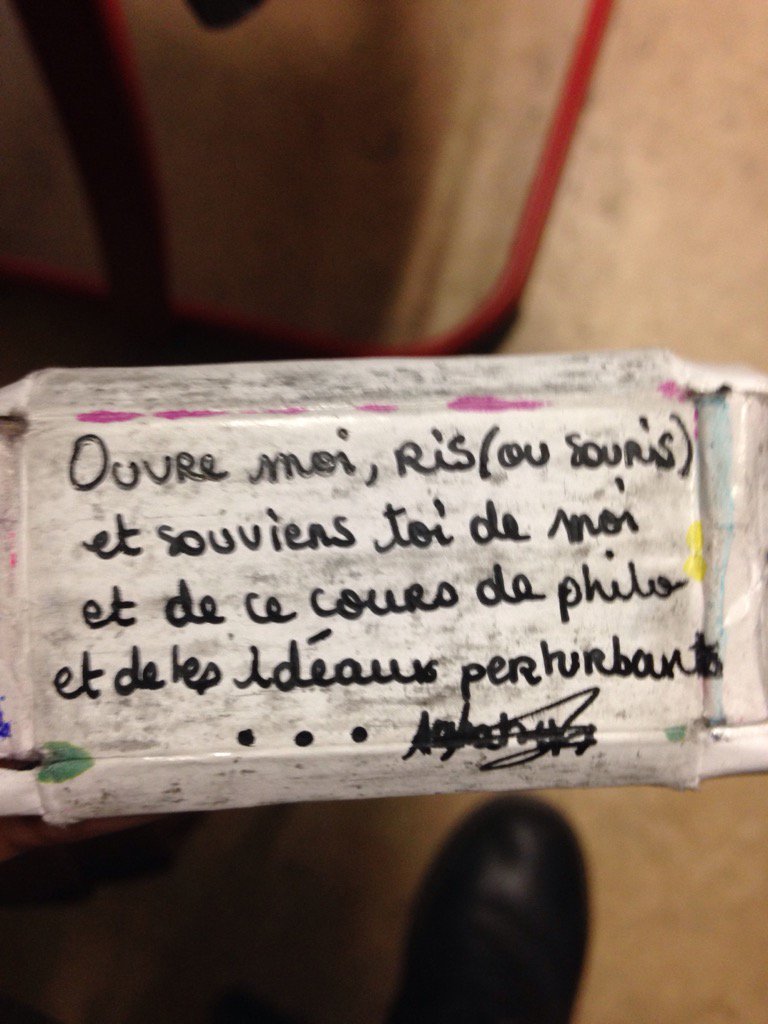 Ouvre moi, ris (ou souris)
et souviens toi de moi
et de ce cours de philo
et de tes idéaux perturbants
...